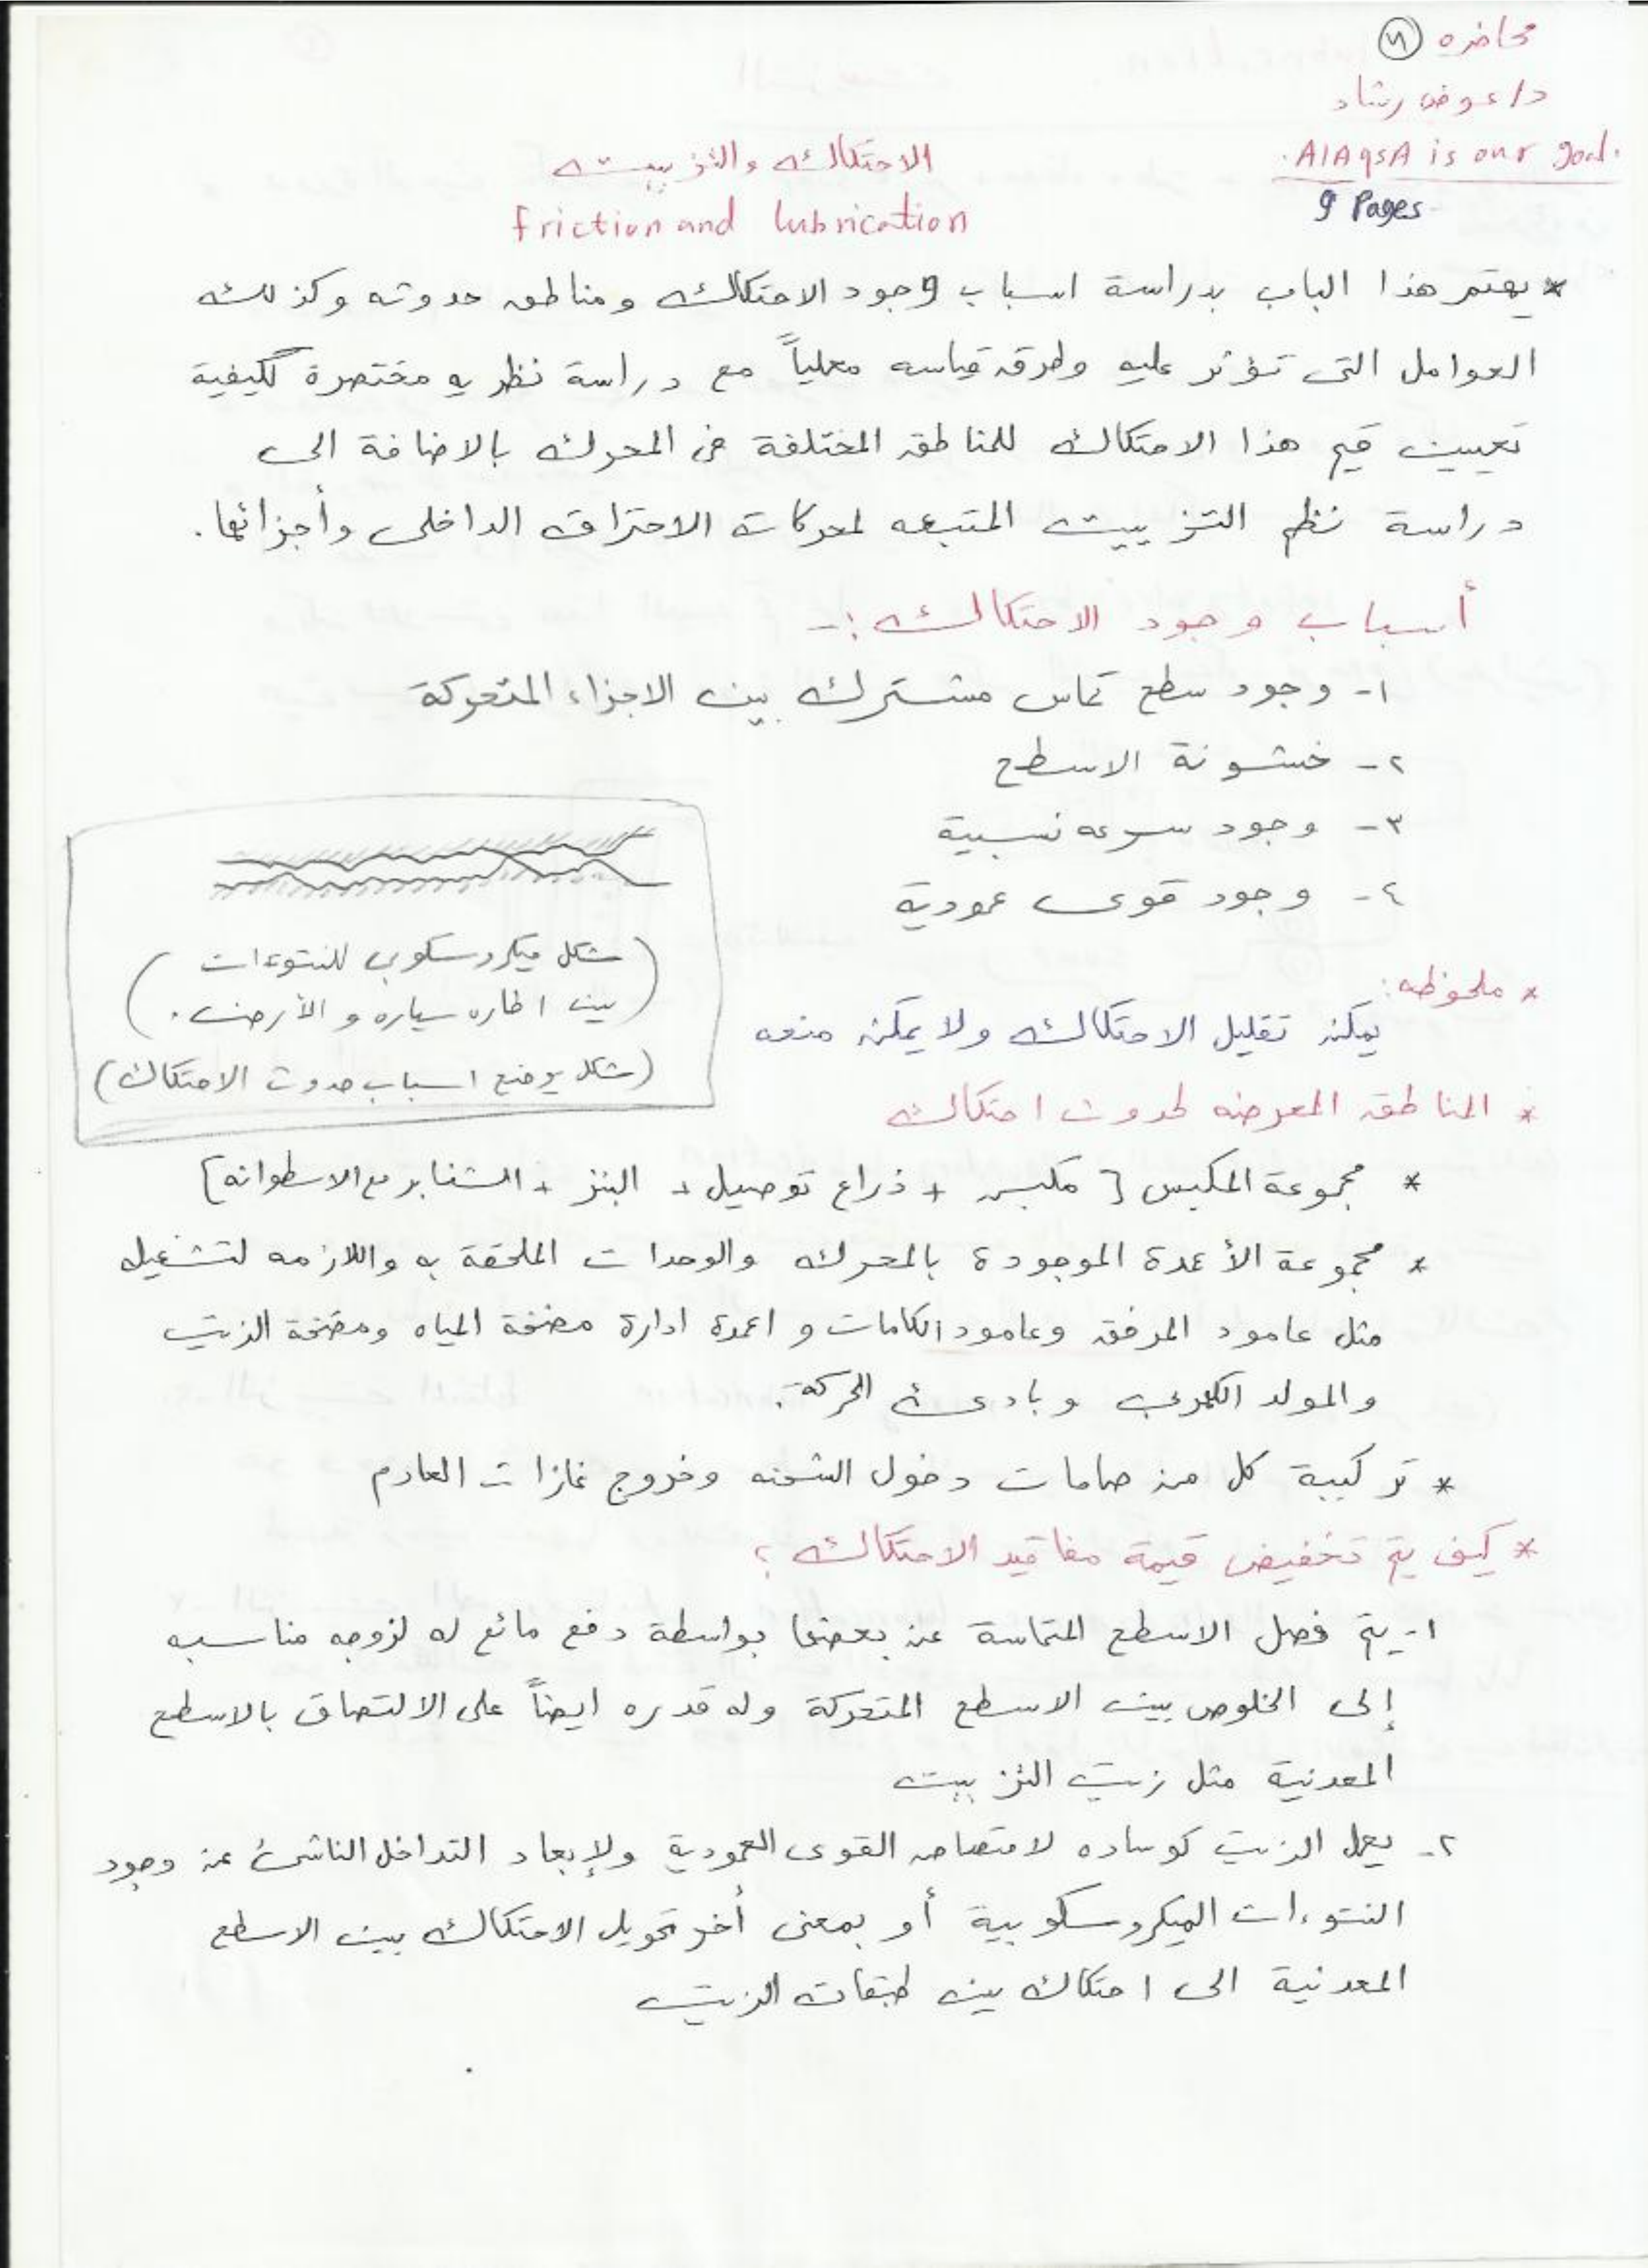 محاضره
د/عوض رشاد
AlAqsA is our goal.
9 Pages
الاحتكاك والتزييت
friction and lubrication
* يهتم هذا الباب بدراسة اسباب وجود الاحتكاك ومناطق حدوثه وكذلك
العوامل التى تؤثر عليه وطرق قياسه معملياً مع دراسة نظريه مختصرة لكيفية
تعيين قيم هذا الاحتكاك للمناطق المختلفة فى المحرك بالاضافة الى
دراسة نظم التزييت المتبعه لمحركات الاحتراق الداخلى وأجزائها.
أسباب وجود الاحتكاك :-
١- وجود سطح تماس مشترك بين الاجزاء المتحركة
٢- خشونة الاسطح
٣- وجود سرعه نسبية
٤- وجود قوى عمودية
(شكل ميكروسكوبى للنتوءات
بين اطاره سياره و الأرض.)
(شكل يوضح اسباب حدوث الاحتكاك)
* ملحوظه:
يمكن تقليل الاحتكاك ولا يمكن منعه
* المناطق المعرضه لحدوث احتكاك
* مجموعة المكبس [مكبس + ذراع توصيل + البنز + الشنابر مع الاسطوانه]
* مجموعة الأعمدة الموجودة بالمحرك والوحدات الملحقة به واللازمه لتشغيله
مثل عامود المرفق وعامود الكامات و اعمدة ادارة مضخة المياه ومضخة الزيت
والمولد الكهربى وبادىء الحركة.
* تركيبة كل من صمامات دخول الشحنه وخروج غازات العادم
* كيف يتم تخفيض قيمة مفاقيد الاحتكاك ؟
١- يتم فصل الاسطح المتماسة عن بعضها بواسطة دفع مائع له لزوجه مناسبه
إلى الخلوص بين الاسطح المتحركة وله قدره ايضاً على الالتصاق بالاسطح
المعدنية مثل زيت التزييت
٢- يعمل الزيت كوساده لامتصاص القوى العمودية ولإبعاد التداخل الناشئ عن وجود
النتوءات الميكروسكوبية أو بمعنى أخر تحويل الاحتكاك بين الاسطح
المعدنية الى احتكاك بين طبقات الزيت